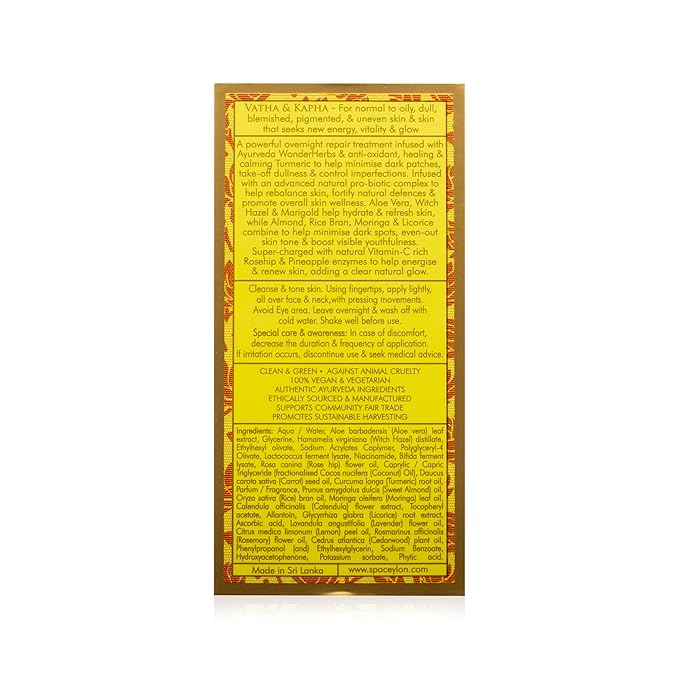 VATHA & KAPHA - For normal to oily, dull,
blemished, pigmented, & uneven skin & skin
that seeks new energy, vitality & glow
A powerful overnight repair treatment infused with
Ayurveda WonderHerbs & anti-oxidant, healing &
calming Turmeric to help minimise dark patches,
take-off dullness & control imperfections. Infused
with an advanced natural pro-biotic complex to
help rebalance skin, fortify natural defences &
promote overall skin wellness. Aloe Vera, Witch
Hazel & Marigold help hydrate & refresh skin,
while Almond, Rice Bran, Moringa & Licorice
combine to help minimise dark spots, even-out
skin tone & boost visible youthfulness.
Super-charged with natural Vitamin-C rich
Rosehip & Pineapple enzymes to help energise
& renew skin, adding a clear natural glow.
Cleanse & tone skin. Using fingertips, apply lightly,
all over face & neck,with pressing movements.
Avoid Eye area. Leave overnight & wash off with
cold water. Shake well before use.
Special care & awareness: In case of discomfort,
decrease the duration & frequency of application.
If irritation occurs, discontinue use & seek medical advice.
CLEAN & GREEN • AGAINST ANIMAL CRUELTY
100% VEGAN & VEGETARIAN
AUTHENTIC AYURVEDA INGREDIENTS
ETHICALLY SOURCED & MANUFACTURED
SUPPORTS COMMUNITY FAIR TRADE
PROMOTES SUSTAINABLE HARVESTING
Ingredients: Aqua / Water, Aloe barbadensis (Aloe vera) leaf
extract, Glycerine, Hamamelis virginiana (Witch Hazel) distillate,
Ethylhexyl olivate, Sodium Acrylates Coplymer, Polyglyceryl-4
Olivate, Lactococcus ferment lysate, Niacinamide, Bifida ferment
lysate, Rosa canina (Rose hip) flower oil, Caprylic / Capric
Triglyceride (fractionalised Cocos nucifera (Coconut) Oil), Daucus
carota sativa (Carrot) seed oil, Curcuma longa (Turmeric) root oil,
Parfum / Fragrance, Prunus amygdalus dulcis (Sweet Almond) oil,
Oryza sativa (Rice) bran oil, Moringa oleifera (Moringa) leaf oil,
Calendula officinalis (Calendula) flower extract, Tocopheryl
acetate, Allantoin, Glycyrrhiza glabra (Licorice) root extract,
Ascorbic acid, Lavandula angustifolia (Lavender) flower oil,
Citrus medica limonum (Lemon) peel oil, Rosmarinus officinalis
(Rosemary) flower oil, Cedrus atlantica (Cedarwood) plant oil,
Phenylpropanol (and) Ethylhexylglycerin, Sodium Benzoate,
Hydroxyacetophenone, Potassium sorbate, Phytic acid.
Made in Sri Lanka
www.spaceylon.com